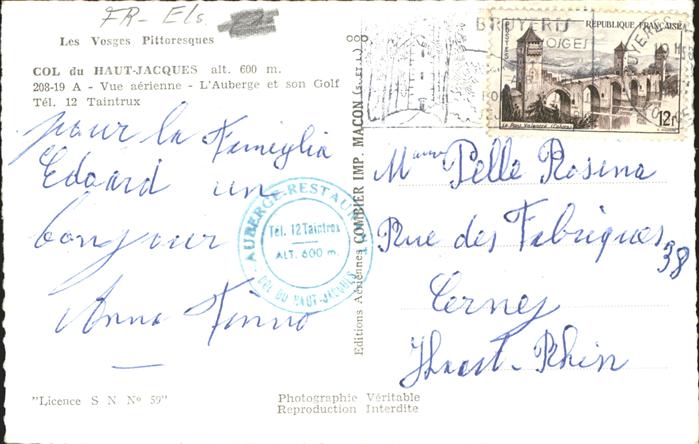 FR- Els.
Les Vosges Pittoresques
COL du HAUT-JACQUES alt. 600 m.
208-19 A - Vue aérienne - L'Auberge et son Golf
Tél. 12 Taintrux
pour la Famiglia
Edoard un
bonjour
Anna
"Licence S N Nº 59"
AUBERGE-RESTAURANT
Tél. 12 Taintrux
ALT. 600 m.
COL DU HAUT-JACQUES
Editions Aériennes COMBIER IMP. MACON
Photographie Véritable
Reproduction Interdite
BRUYERES
VOSGES
POSTES
REPUBLIQUE FRANÇAISE
Le Pont Valentré (Cahors)
12f
Mame Pelle Rosina
Rue des Fabriques 38
Cerney
Haut-Rhin